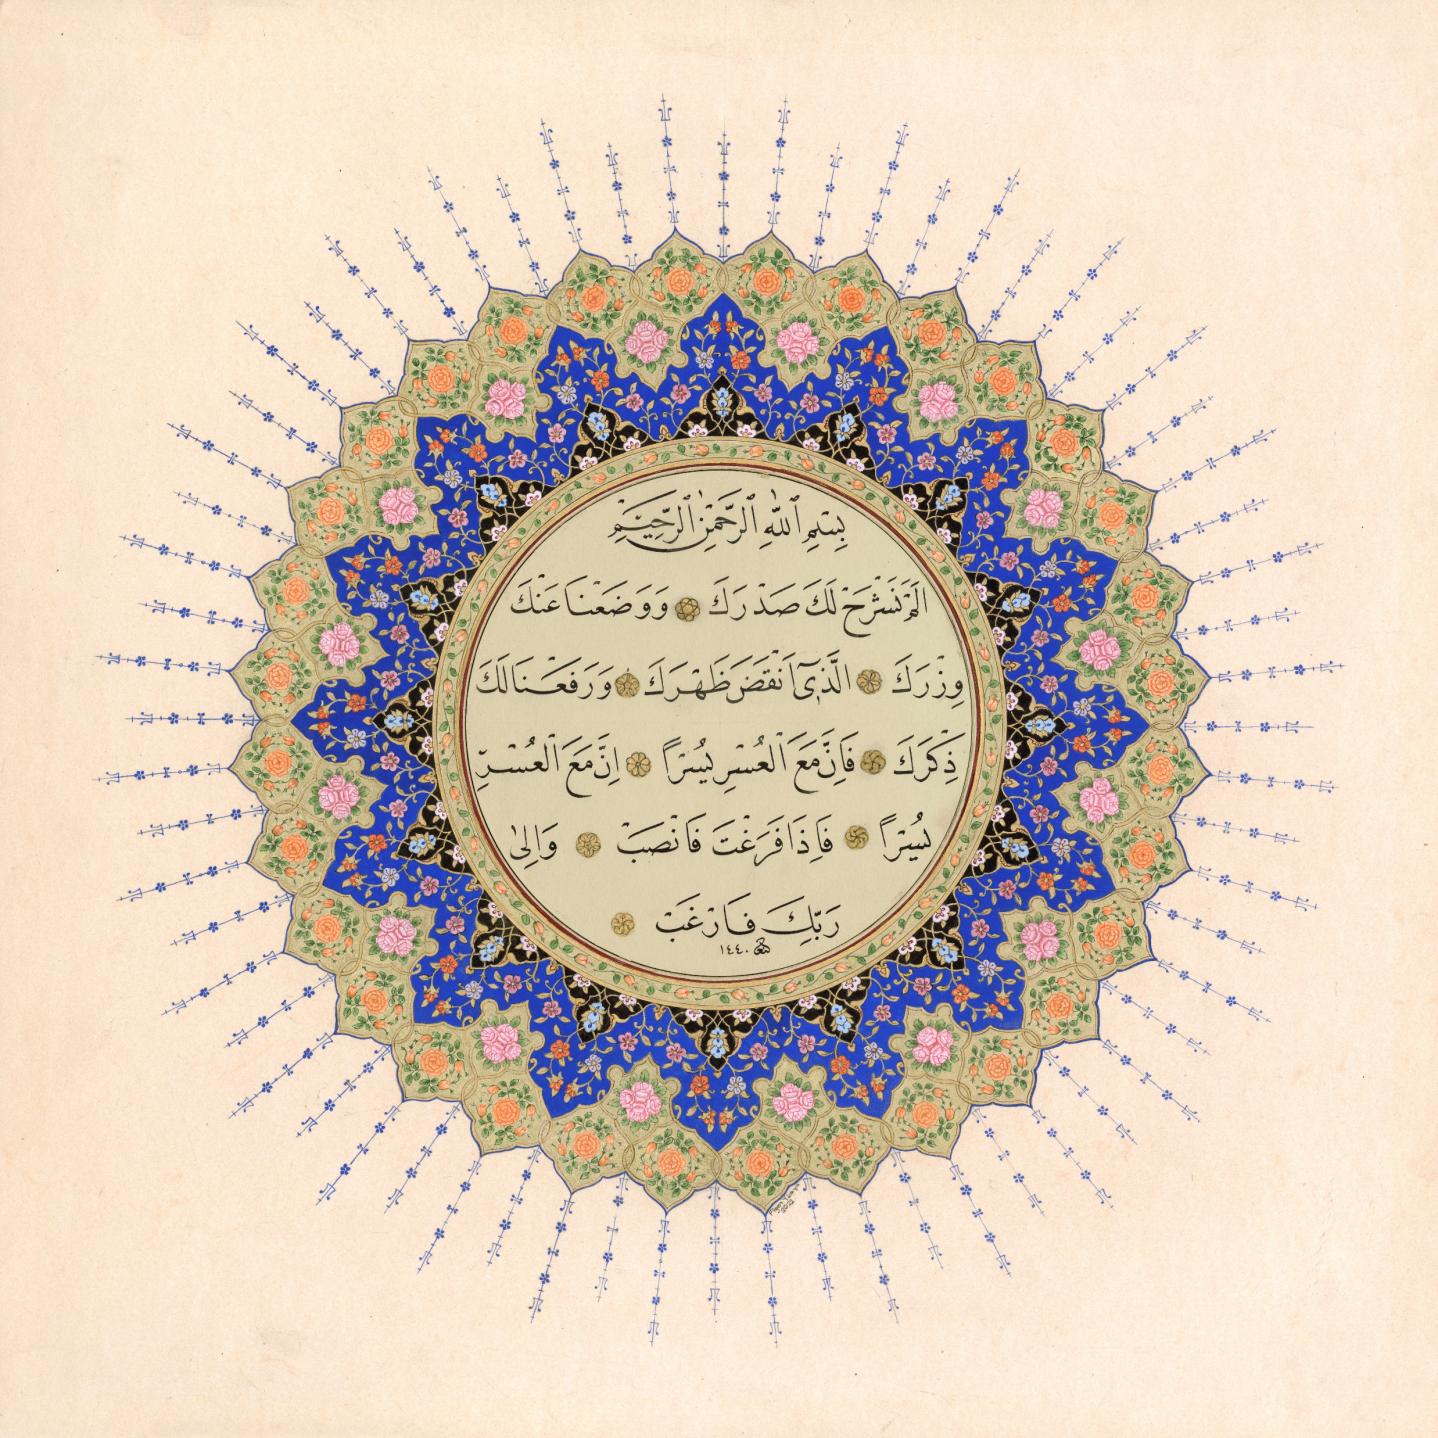 بِسْمِ اللّٰهِ الرَّحْمٰنِ الرَّحِيمِ
اَلَمْ نَشْرَحْ لَكَ صَدْرَكَ ۝ وَوَضَعْنَا عَنْكَ
وِزْرَكَ ۝ الَّذِٓي اَنْقَضَ ظَهْرَكَ ۝ وَرَفَعْنَا لَكَ
ذِكْرَكَ ۝ فَاِنَّ مَعَ الْعُسْرِ يُسْرًا ۝ اِنَّ مَعَ الْعُسْرِ
يُسْرًا ۝ فَاِذَا فَرَغْتَ فَانْصَبْ ۝ وَاِلٰى
رَبِّكَ فَارْغَبْ ۝
١٤٤٠